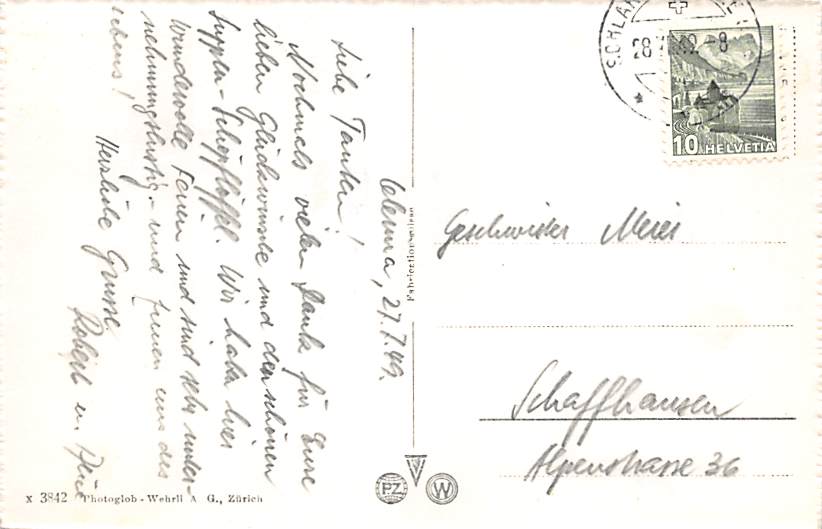 Celerina, 27.7.49.
Liebe Tanten!
Nochmals vielen Dank für Eure
lieben Glückwünsche und den schönen
Suppen-Schöpflöffel. Wir haben hier
wundervolle Ferien und sind sehr unter-
nehmungslustig - und freuen uns des
Lebens!
Herzliche Grüsse
Robert u.
Geschwister Meier
Schaffhausen
Alpenstrasse 36
28 49 - 8
10 HELVETIA
PZ
W
X 3842 Photoglob - Wehrli A G., Zürich